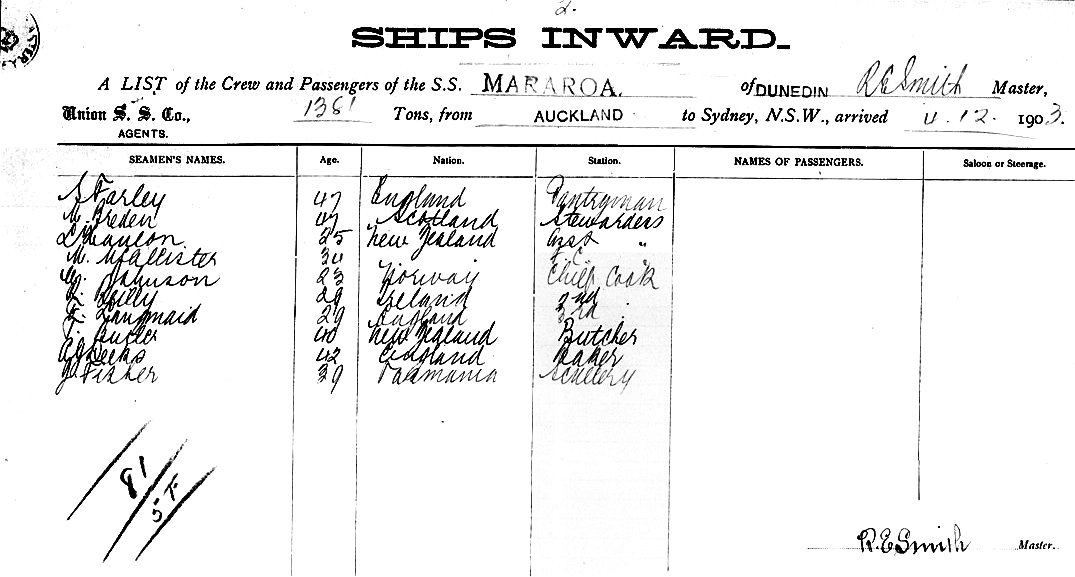 2.
SHIPS INWARD.
A LIST of the Crew and Passengers of the S.S. MARAROA. of DUNEDIN R.E. Smith Master,
Union S. S. Co., 1381 Tons, from AUCKLAND to Sydney, N.S.W., arrived 12. 1903.
AGENTS.
SEAMEN'S NAMES. Age. Nation. Station. NAMES OF PASSENGERS. Saloon or Steerage.
S Farley 47 England Pantryman
M. Breden 47 Scotland Stewardess
25 New Zealand Asst "
M. McAllister 30 F.C.
Johnson 23 Norway Chief Cook
Reilly 29 Ireland 2nd
F. Langmaid 29 England 3rd
T. Butler 40 New Zealand Butcher
42 England Baker
J Fisher 39 Tasmania Scullery
81
5 F
R.E. Smith Master.